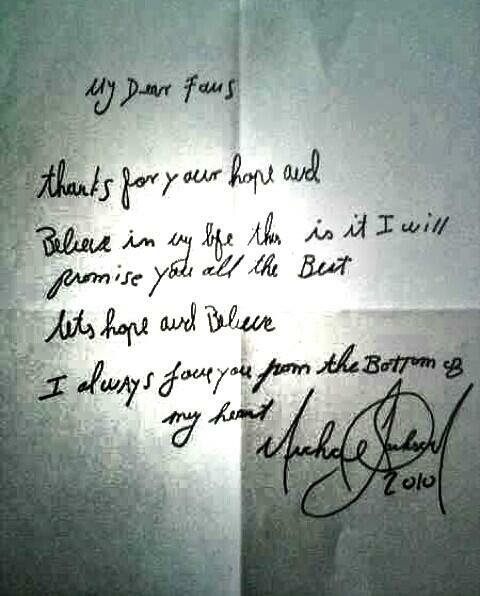 My Dear Fans
thanks for your hope and
Believe in my life this is it I will
promise you all the Best
lets hope and Believe
I always love you from the Bottom of
my heart
Michael Jackson
2010